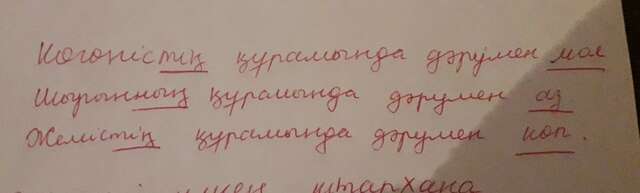 Көгөністің құрамында дәрумен мол
Шырынның құрамында дәрумен аз
Жемістің құрамында дәрумен көп.